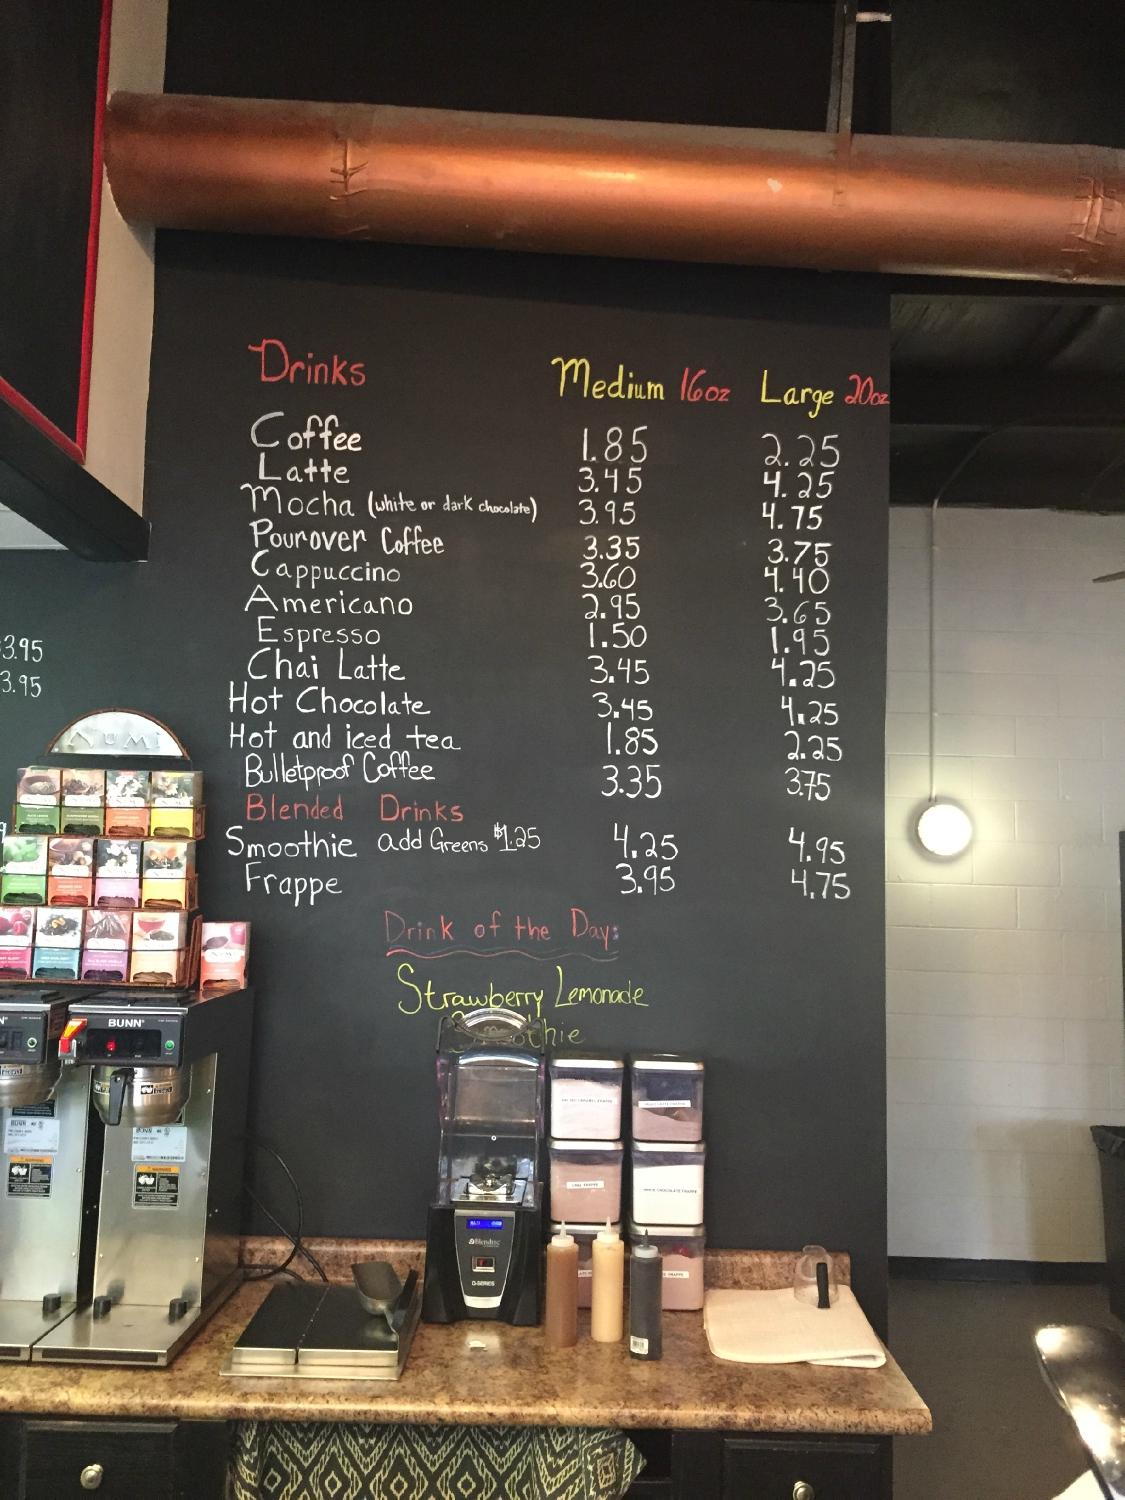 Drinks Medium 16oz Large 20oz
Coffee 1.85 2.25
Latte 3.45 4.25
Mocha (white or dark chocolate) 3.95 4.75
Pourover Coffee 3.35 3.75
Cappuccino 3.60 4.40
Americano 2.95 3.65
Espresso 1.50 1.95
Chai Latte 3.45 4.25
Hot Chocolate 3.45 4.25
Hot and iced tea 1.85 2.25
Bulletproof Coffee 3.35 3.75
Blended Drinks
Smoothie add Greens $1.25 4.25 4.95
Frappe 3.95 4.75
Drink of the Day:
Strawberry Lemonade
Smoothie
3.95
3.95
NUMI
BUNN
BUNN
WARNING
WARNING
Blendtec
Q-SERIES